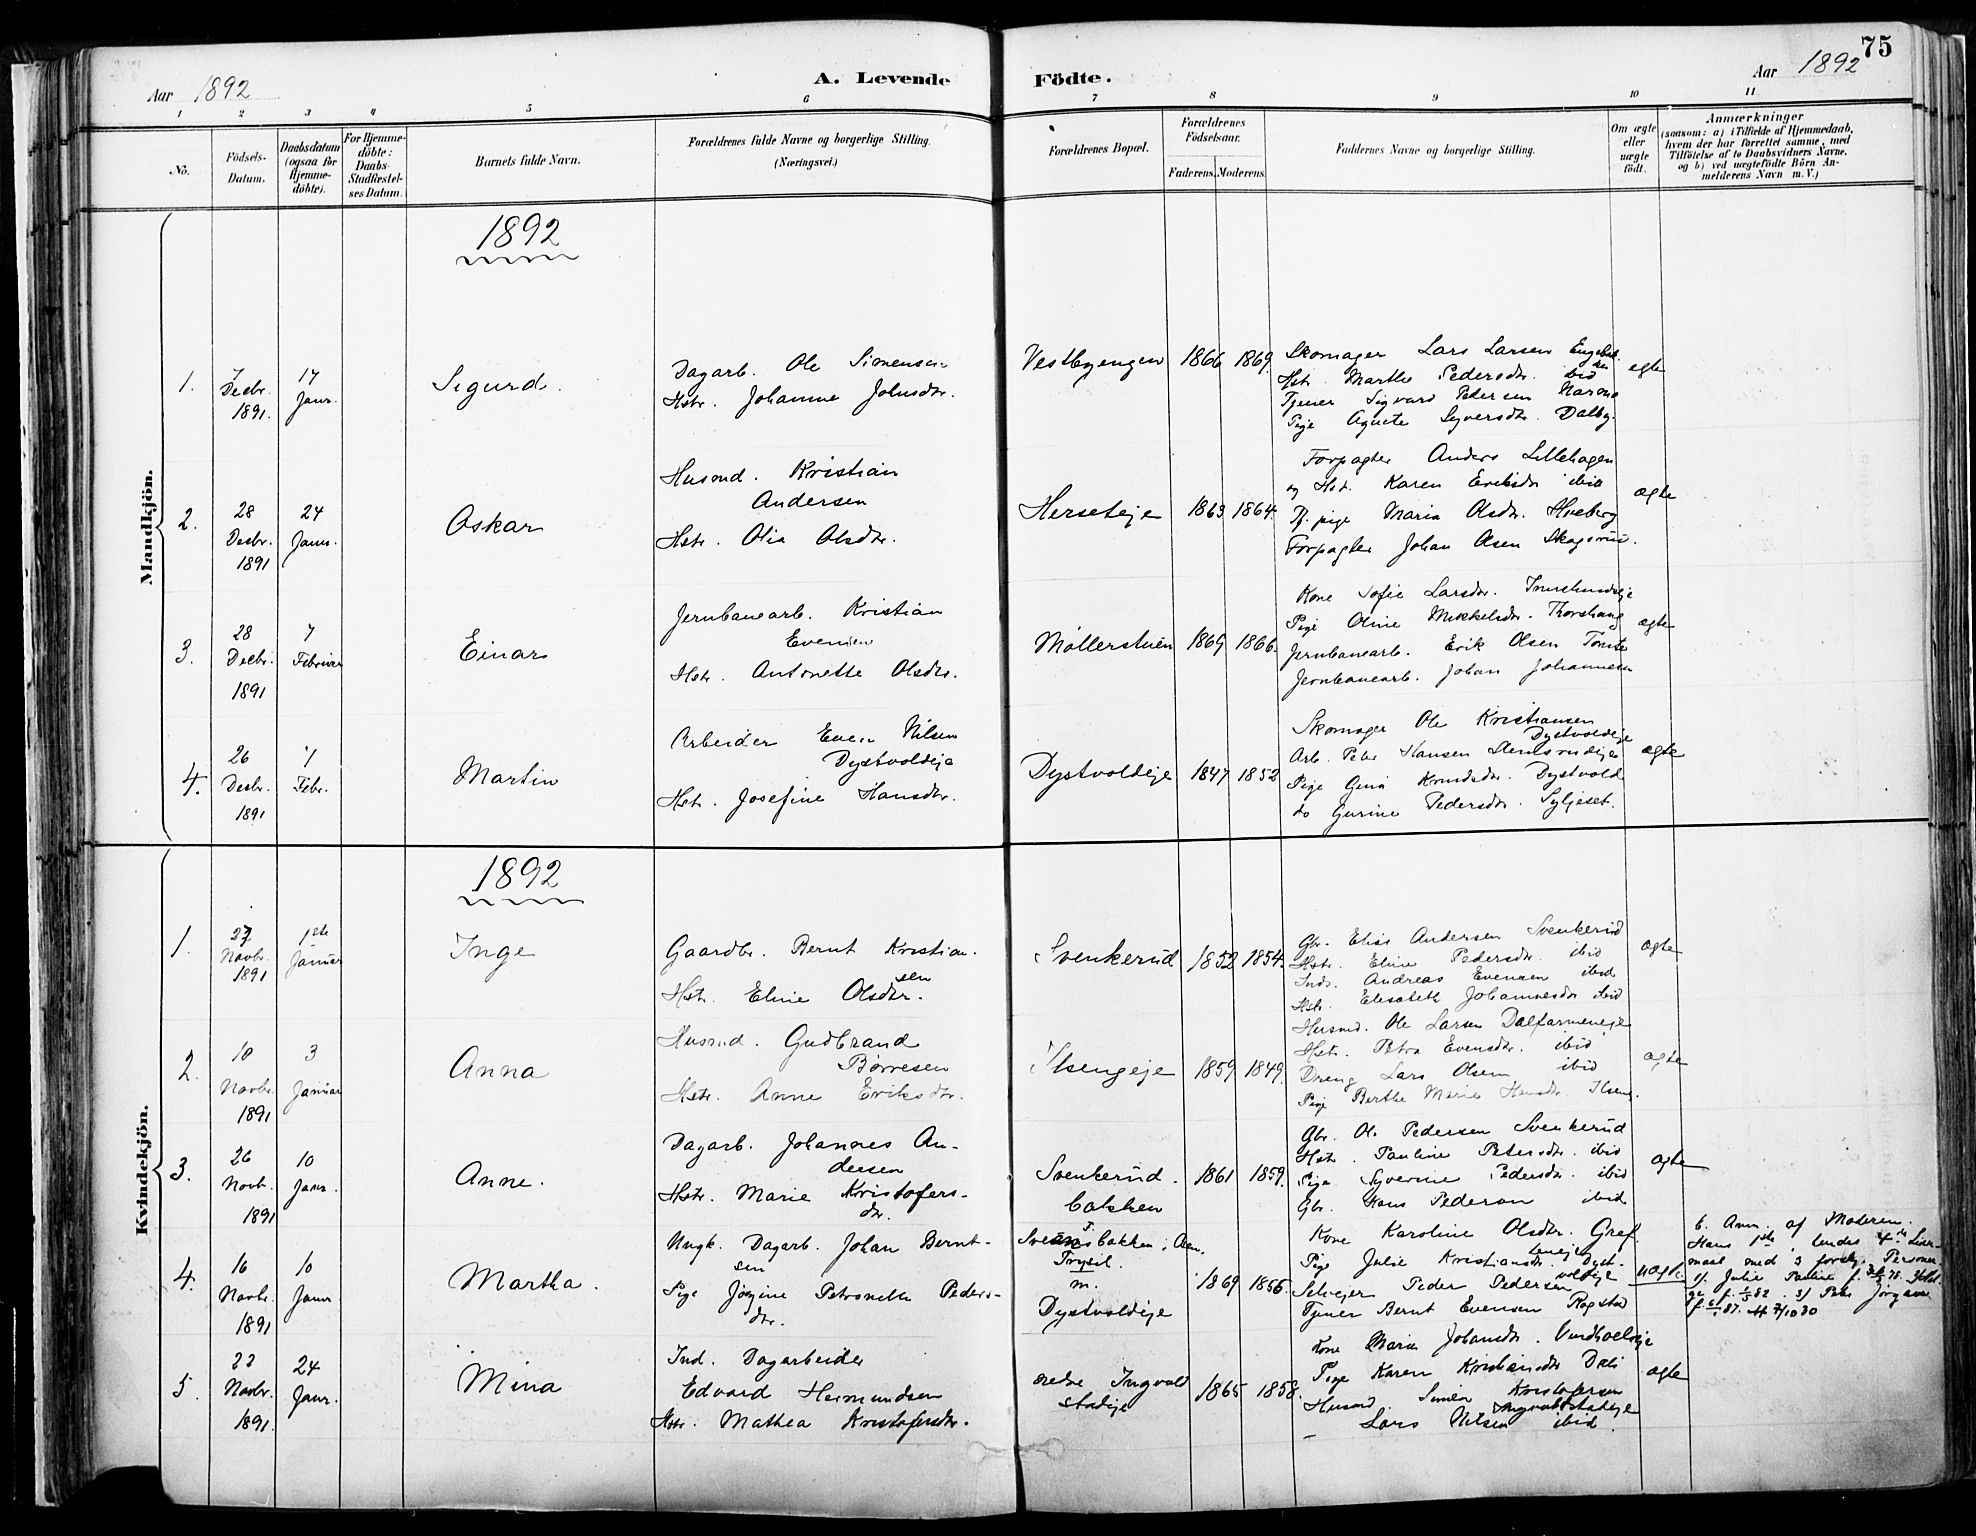 75
Aar 1892
A. Levende Födte.
Aar 1892
1 2 3 4 5 6 7 8 9 10 11
No.
Födsels-
Datum.
Daabsdatum
(ogsaa for
Hjemme-
döbte).
For Hjemme-
döbte:
Daabs-
Stadfæstel-
ses Datum.
Barnets fulde Navn.
Forældrenes fulde Navne og borgerlige Stilling.
(Næringsvei.)
Forældrenes Bopæl.
Forældrenes
Födselsaar.
Faderens. Moderens.
Faddernes Navne og borgerlige Stilling.
Om ægte
eller
uægte
födt.
Anmærkninger
(saasom: a) i Tilfælde af Hjemmedaab,
hvem der har forrettet samme, med
Tilföielse af to Daabsvidners Navne,
og b) ved uægtefödte Börn An-
melderens Navn m. V.)
Mandkjön.
1892
1.
7
Decbr.
1891.
17
Janr.
Sigurd.
Dagarb. Ole Simensen
Hstr. Johanne Johnsdtr.
Vestbyengen
1866
1869.
Skomager Lars Larsen
Hstr. Marthe Pedersdtr. ibid
Tjener Sigvard Petersen
Pige Agnete Syversdtr. Dalby.
egte
2.
28
Desbr.
1891
24
Janr.
Oskar
Husmd. Kristian
Andersen
Hstr. Olia Olsdtr.
Herseteje
1863
1864.
Forpagter Anders Lillehagen
og Hst. Karen Eriksdtr ibid
pige Maria Olsdtr. Hveberg
Forpagter Johan Olsen Skagsrud.
ægte
3.
28
Decbr.
1891
7
Februer
Einar
Jernbanearb. Kristian
Evensen
Hstr. Antonette Olsdtr.
Møllerstuen
1869
1866.
Kone Sofie Larsdtr.
Pige Oline Mikkelsdtr. Thorshaug
Jernbanearb. Erik Olsen Tomte
Jernbanearb. Johan Johannesen
ægte
4.
26
Desbr.
1891
7
Febr.
Martin
Arbeider Even Nilsen
Dystvoldeje
Hstr. Josefine Hansdtr.
Dystvoldeje
1847
1852
Skomager Ole Kristiansen
Dystvoldeje
Arb. Peter Hansen Stensrudeje
Pige Gina Knudsdtr. Dystvold
do Gurine Pedersdtr. Syljeset.
ægte
Kvindekjön.
1892
1.
27
Novbr.
1891
1ste
Januer
Inge
Gaardbr. Bernt Kristian-
sen
Hstr. Eline Olsdtr.
Svenkerud
1852
1854.
Gbr. Elias Andersen Svenkerud
Hstr. Eline Pedersdtr. ibid
Inds. Andreas Evensen ibid
Hstr. Elisabeth Johannesdtr ibid
ægte
2.
10
Novbr.
1891
3
Januar
Anna
Husmd. Gudbrand
Børresen
Hstr. Anne Eriksdtr.
Ilsengeje
1859
1849.
Husmd. Ole Larsen Dalfarmeneje
Hstr. Petra Evensdtr. ibid
Dreng Lars Olsen ibid
Pige Berthe Marie Hansdtr. Ilseng.
ægte
3.
26
Novb.
1891
10
Janr.
Anne.
Dagarb. Johannes An-
dersen
Hstr. Marie Kristofers-
dtr.
Svenkerud.
bakken
1861
1859.
Gbr. Ole Pedersen Svenkerud
Hstr. Pauline Petersdtr. ibid
Pige Syverine Pedersdtr. ibid
Gbr. Hans Pedersen ibid
ægte
4.
16
Novbr.
1891
10
Janr
Martha.
Ungk. Dagarb. Johan Bernt-
sen
Pige Jørgine Petronelle Peders-
dtr.
Trysil.
m.
Dystvoldeje
1869
1856.
Kone Karoline Olsdtr. Gref.
Pige Julie Kristiansdtr.
Selvejer Peder Pedersen
Tjener Bernt Evensen Rogstad
uægte.
b. Anm. af Moderen.
Hans 1ste, hendes 4de Leier-
maal med 3 forskj. Personer
1/ Julie Pauline
3/ Jørgine
5.
22
Novbr.
1891
24
Janr.
Mina
Ind. Dagarbeider
Edvard Hermundsen
Hstr. Mathea Kristofersdtr.
nedre Ingvold
stadeje
1865
1858.
Kone Maria Johansdtr.
Pige Karen Kristiansdtr Dæli
Husmd. Simen Kristofersen
Ingvoldstadeje
– Lars Nilsen ibid.
ægte